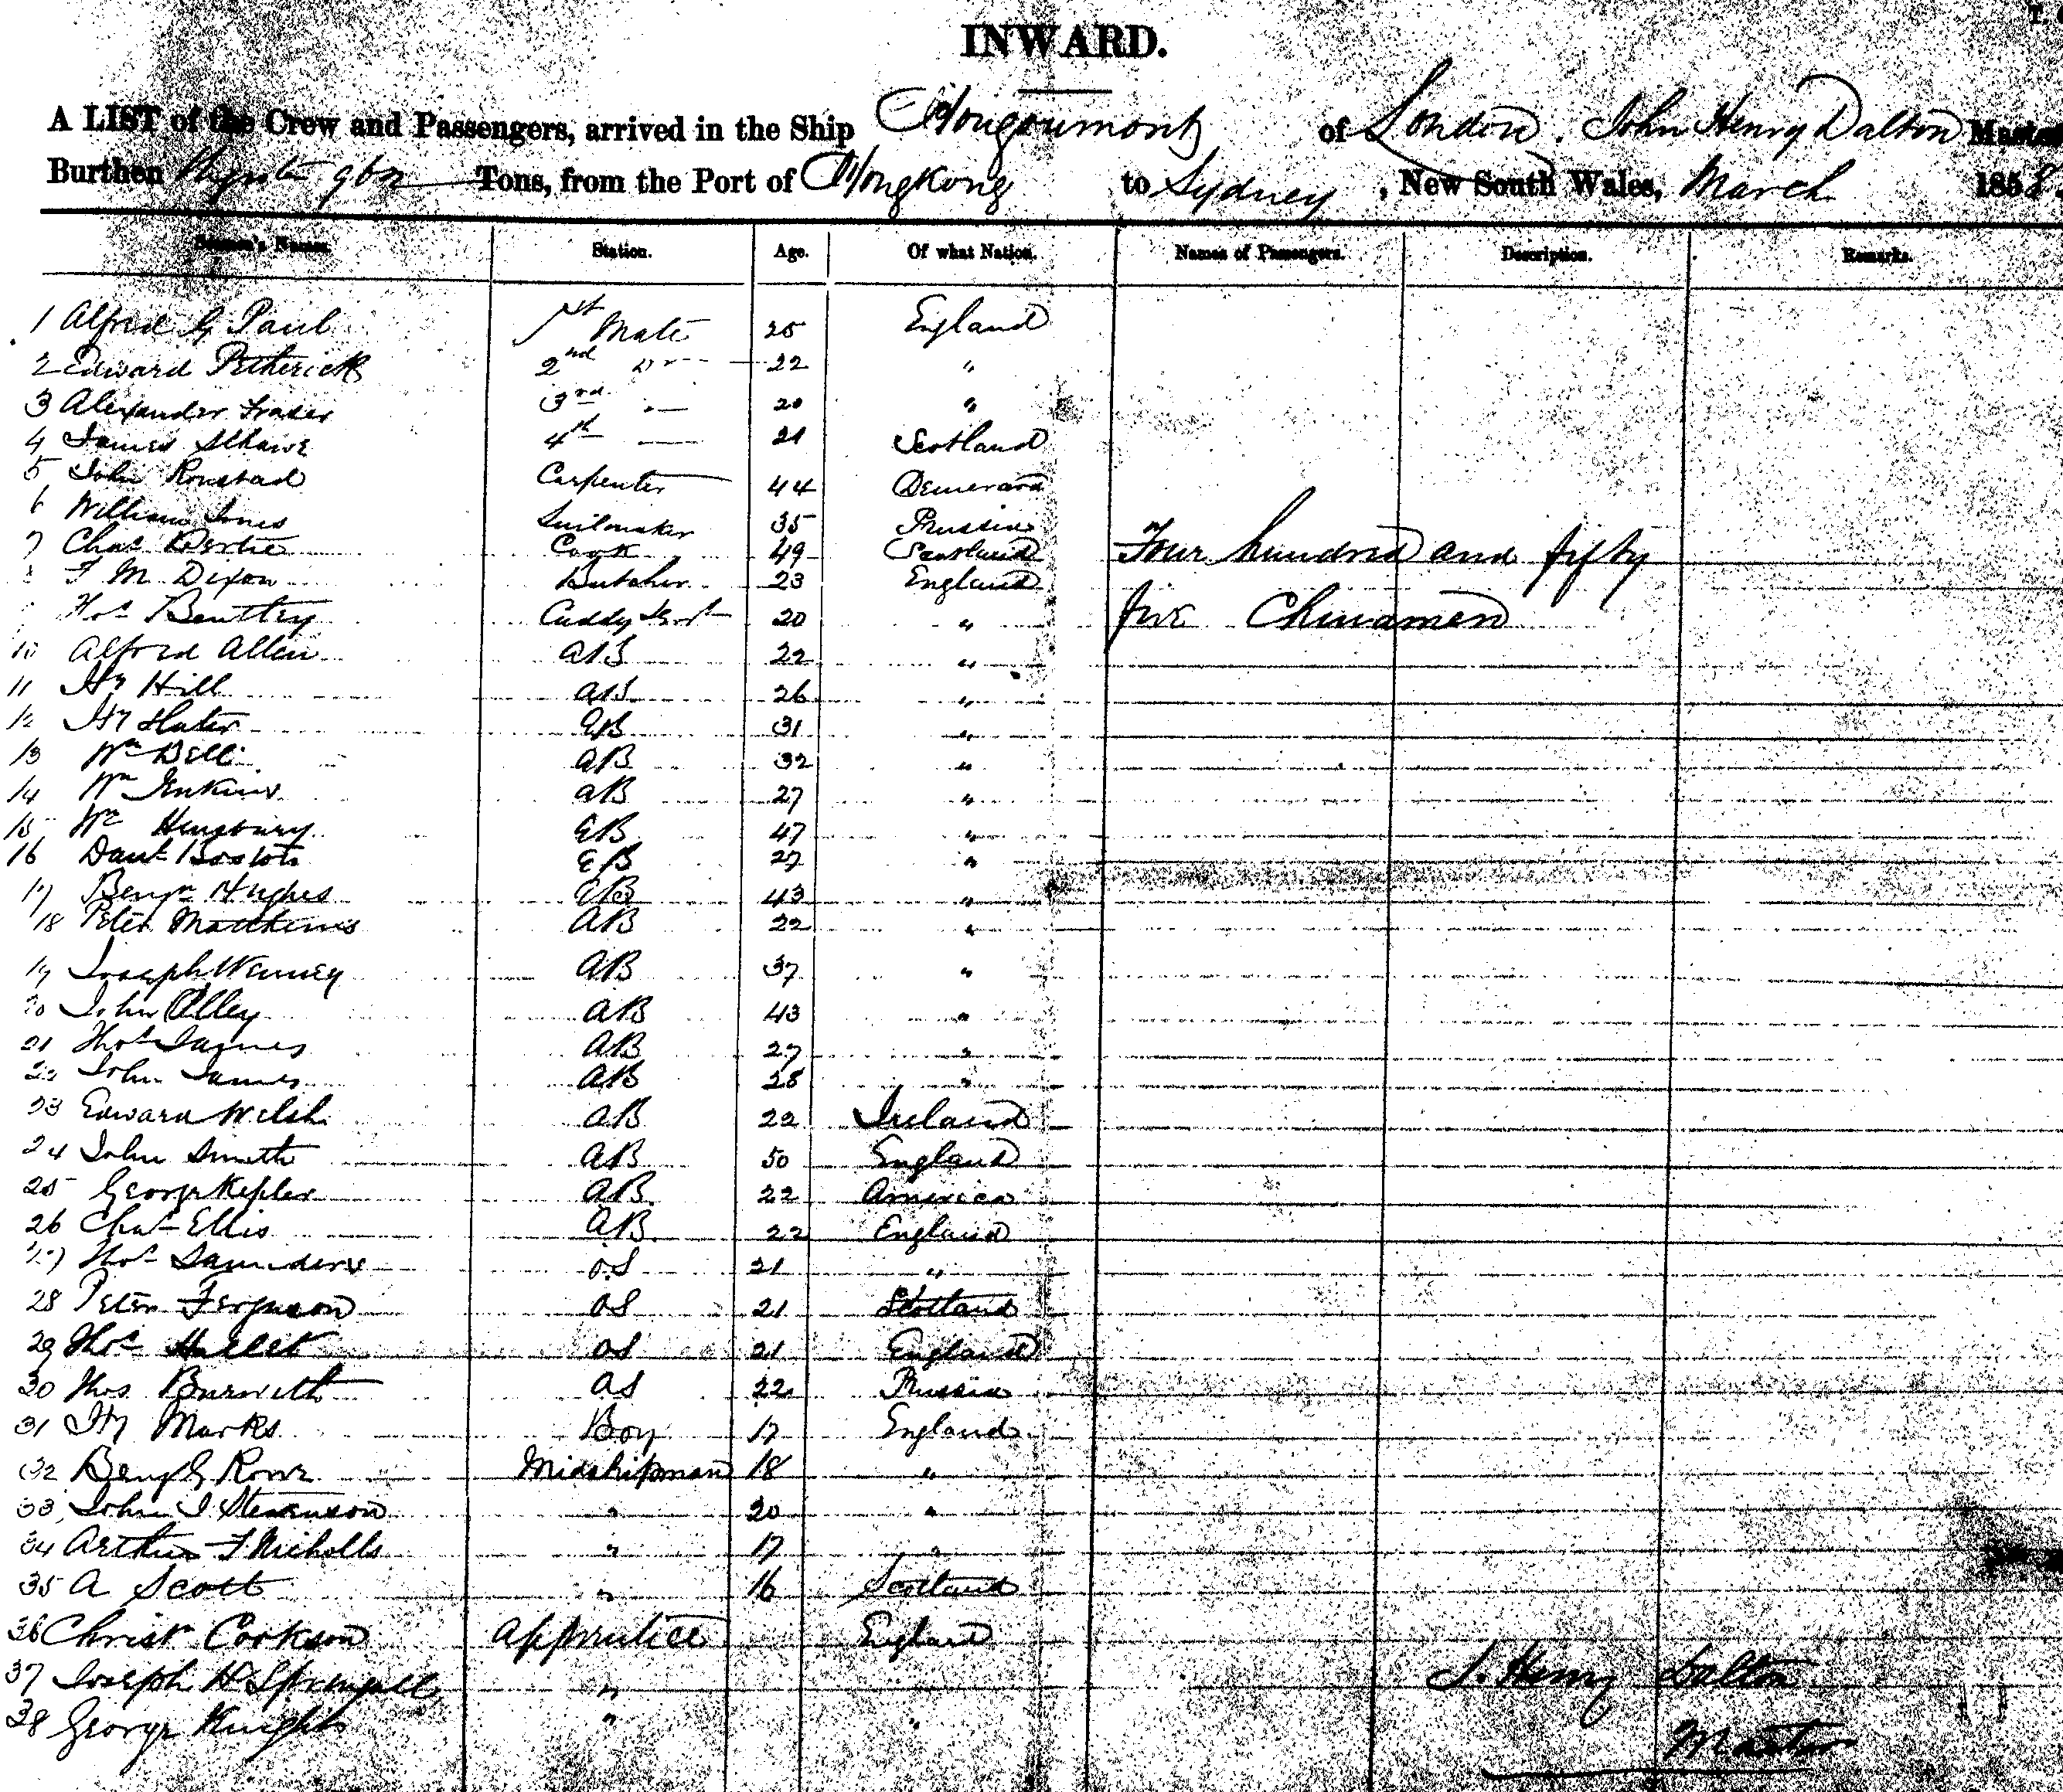 INWARD.
A LIST of the Crew and Passengers, arrived in the Ship Hougoumont of London, John Henry Dalton Master
Burthen Tons, from the Port of Hongkong to Sydney, New South Wales, March 1858.
Seamen's Names. Station. Age. Of what Nation. Names of Passengers. Description. Remarks.
1 Alfred G Paul 1st Mate 25 England
2 Edward Petherick 2nd Do 22 "
3 Alexander Fraser 3rd " 20 "
4 James 4th 21 Scotland
5 John Carpenter 44 Demerara
6 William Jones Sailmaker 35 Prussia
7 Chas Cook 49 Scotland Four hundred and fifty
F M Dixon Butcher 23 England
Thos Bentley Cuddy Servt 20 " five Chinamen
10 Alfred Allen AB 22 "
11 Hy Hill AB 26 "
12 Hy Slater AB 31 "
13 Wm Bell AB 32 "
14 Wm Jenkins AB 27 "
15 Wm AB 47 "
16 Danl AB 27 "
17 Benjn Hughes AB 43 "
18 Peter AB 22 "
19 Joseph AB 37 "
20 John AB 43 "
21 Thos James AB 27 "
22 John James AB 28 "
23 Edward Welsh AB 22 Ireland
24 John Smith AB 50 England
25 George Kepler AB 22 America
26 Chas Ellis AB 22 England
27 Thos Saunders OS 21 "
28 Peter Ferguson OS 21 Scotland
29 Thos OS 21 England
30 Thos OS 22 Prussia
31 Hy Marks Boy 17 England
32 Benj G Rowe Midshipman 18 "
33 John J Stevenson " 20 "
34 Arthur F Nicholls " 17 "
35 A Scott " 16 Scotland
36 Christr Cookson Apprentice England
37 Joseph H "
38 George Knights " "
J. Henry Dalton
Master